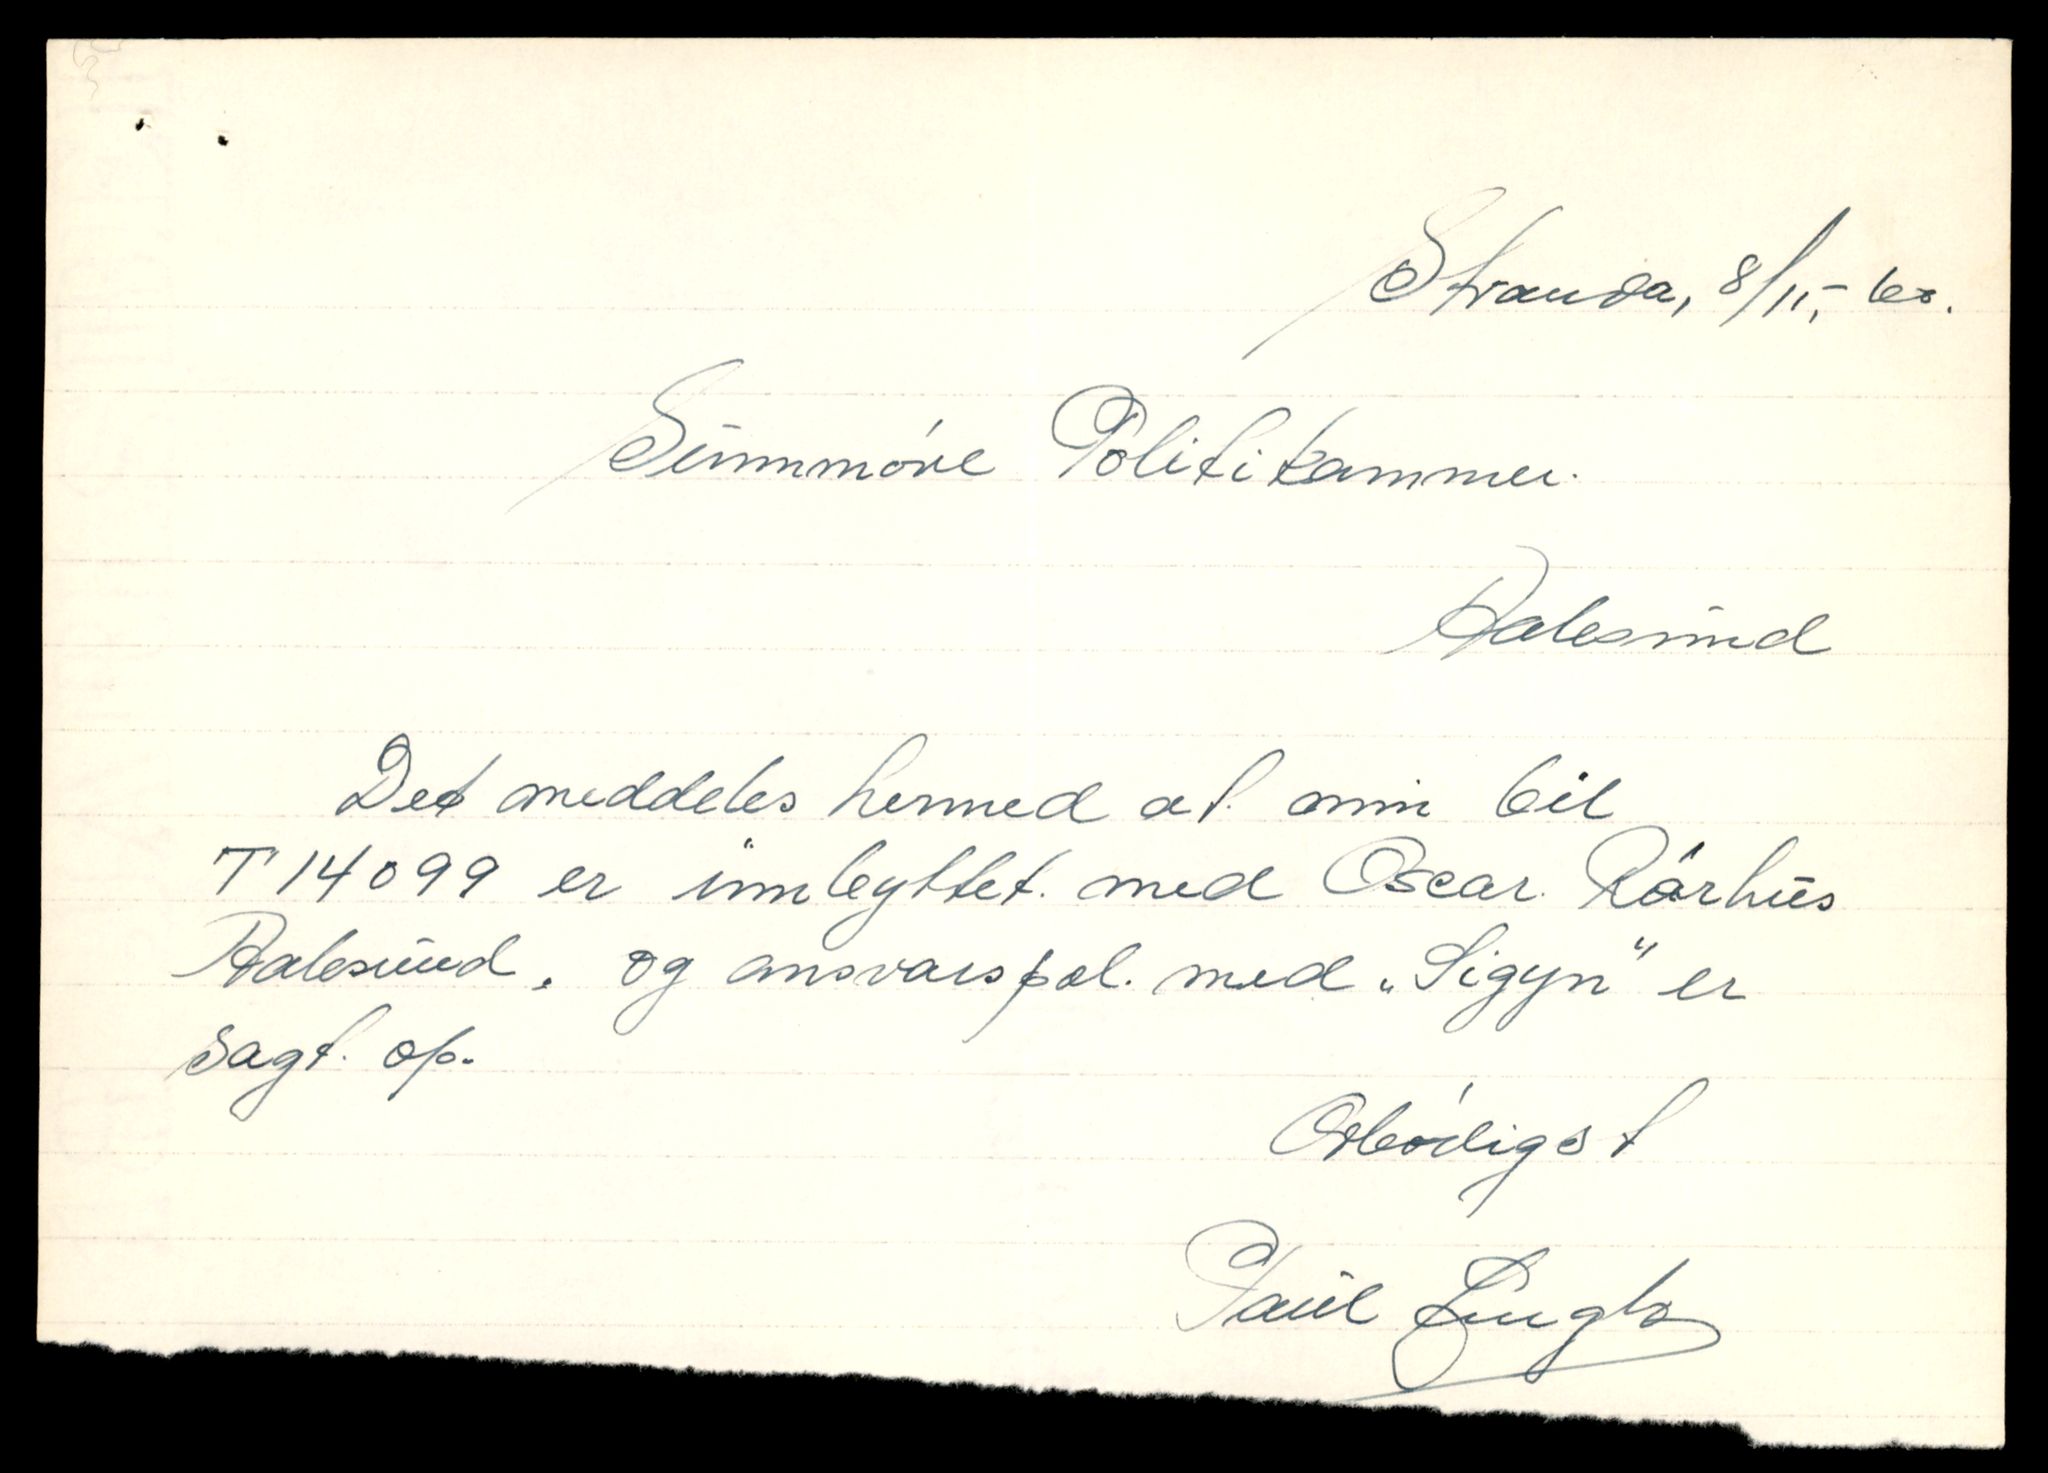 Stranda, 8/11,- 60.
Sunnmóre Politikammer.
Aalesund
Det meddeles hermed at min bil
T 14099 er innbyttet med Oscar Rårhus
Aalesund. og ansvarspol. med „Sigyn" er
sagt op.
Ærbódigst
Paul